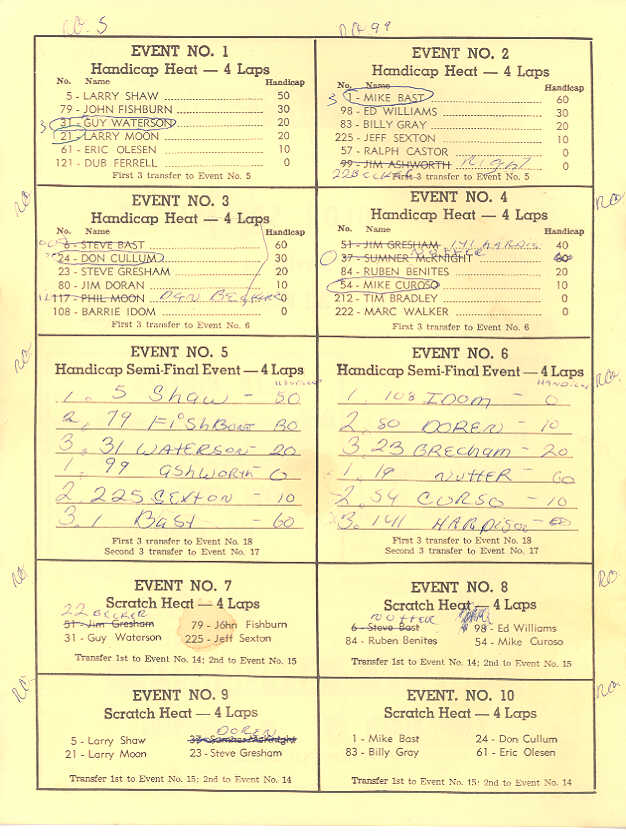 RO. 5
RO 99
EVENT NO. 1
Handicap Heat — 4 Laps
No. Name Handicap
5 - LARRY SHAW 50
79 - JOHN FISHBURN 30
3 31 - GUY WATERSON 20
21 - LARRY MOON 20
61 - ERIC OLESEN 10
121 - DUB FERRELL 0
First 3 transfer to Event No. 5
EVENT NO. 2
Handicap Heat — 4 Laps
No. Name Handicap
3 1 - MIKE BAST 60
98 - ED WILLIAMS 30
83 - BILLY GRAY 20
225 - JEFF SEXTON 10
57 - RALPH CASTOR 0
99 - JIM ASHWORTH Right 0
22 BECKER First 3 transfer to Event No. 5
EVENT NO. 3
Handicap Heat — 4 Laps
No. Name Handicap
6 - STEVE BAST 60
24 - DON CULLUM 30
23 - STEVE GRESHAM 20
80 - JIM DORAN 10
117 - PHIL MOON 0
108 - BARRIE IDOM 0
First 3 transfer to Event No. 6
EVENT NO. 4
Handicap Heat — 4 Laps
No. Name Handicap
51 - JIM GRESHAM 141 HARDIS 40
37 - SUMNER McKNIGHT 60
84 - RUBEN BENITES 20
54 - MIKE CUROSO 10
212 - TIM BRADLEY 0
222 - MARC WALKER 0
First 3 transfer to Event No. 6
EVENT NO. 5
Handicap Semi-Final Event — 4 Laps
HANDICAP
1. 5 Shaw - 50
2. 79 FishBorne 30
3. 31 WATERSON - 20
1. 99 ashworth - 0
2. 225 SEXTON - 10
3. 1 Bast - 60
First 3 transfer to Event No. 18
Second 3 transfer to Event No. 17
EVENT NO. 6
Handicap Semi-Final Event — 4 Laps
HANDICAP
1. 108 IDOM - 0
2. 80 DOREN - 10
3. 23 BRECHAM - 20
1. 19 NUTTER - 60
2. 54 CURSO - 10
3. 141 HARDISON -
First 3 transfer to Event No. 18
Second 3 transfer to Event No. 17
EVENT NO. 7
Scratch Heat — 4 Laps
22 BECKER
51 - Jim Gresham 79 - John Fishburn
31 - Guy Waterson 225 - Jeff Sexton
Transfer 1st to Event No. 14; 2nd to Event No. 15
EVENT NO. 8
Scratch Heat — 4 Laps
NUTTER
6 - Steve Bast 98 - Ed Williams
84 - Ruben Benites 54 - Mike Curoso
Transfer 1st to Event No. 14; 2nd to Event No. 15
EVENT NO. 9
Scratch Heat — 4 Laps
DOREN
5 - Larry Shaw 37 - Sumner McKnight
21 - Larry Moon 23 - Steve Gresham
Transfer 1st to Event No. 15; 2nd to Event No. 14
EVENT. NO. 10
Scratch Heat — 4 Laps
1 - Mike Bast 24 - Don Cullum
83 - Billy Gray 61 - Eric Olesen
Transfer 1st to Event No. 15; 2nd to Event No. 14